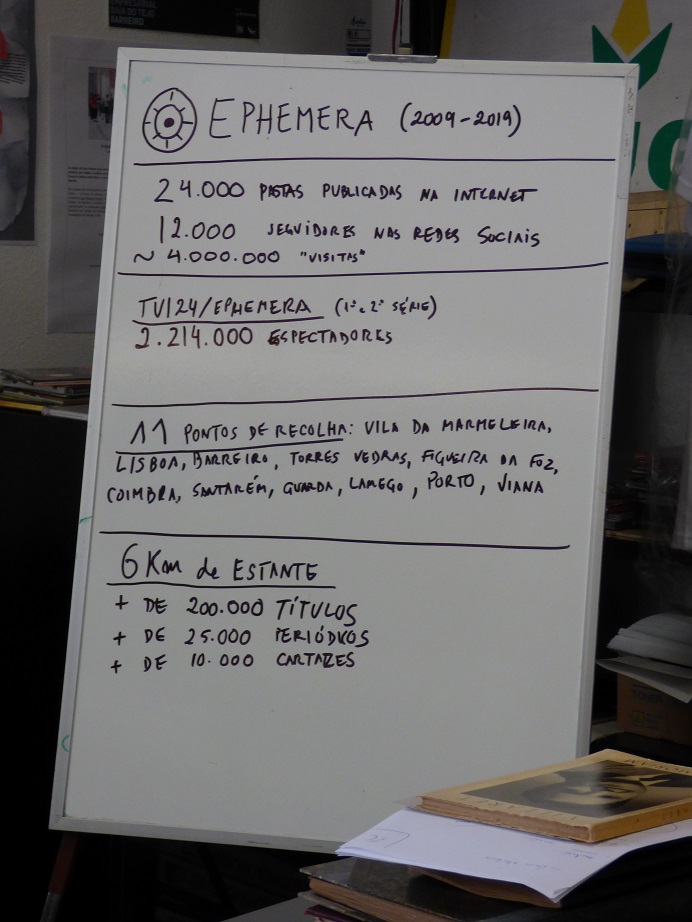 EMPRESARIAL
BAIA DO TEJO
BARREIRO
EPHEMERA (2009-2019)
24.000 PASTAS PUBLICADAS NA INTERNET
12.000 SEGUIDORES NAS REDES SOCIAIS
~ 4.000.000 "VISITAS"
TVI24/EPHEMERA (1ª e 2ª SÉRIE)
2.214.000 ESPECTADORES
11 PONTOS DE RECOLHA: VILA DA MARMELEIRA,
LISBOA, BARREIRO, TORRES VEDRAS, FIGUEIRA DA FOZ,
COIMBRA, SANTARÉM, GUARDA, LAMEGO, PORTO, VIANA
6 Km de ESTANTE
+ DE 200.000 TÍTULOS
+ DE 25.000 PERIÓDICOS
+ DE 10.000 CARTAZES